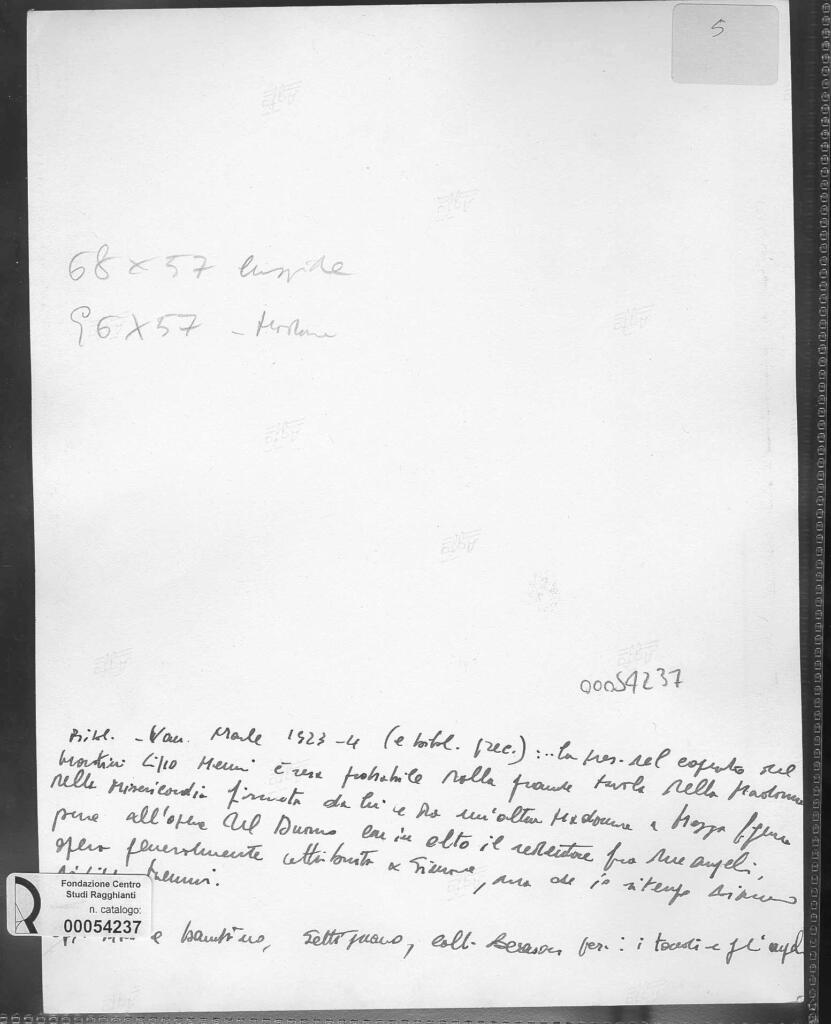 5
68 x 57 cuspide
96 x 57 -
00054237
Bibl. - Van Marle 1923-4 (e bibl. prec.) : .. la pres. nel
Martini Lippo Memmi è resa probabile dalla grande tavola della Madonna
della Misericordia firmata da lui e da un'altra Madonna a mezza figura
pure all'opera del Duomo con in alto il redentore fra due angeli,
opera generalmente attribuita a Simone, ma che io ritengo
Fondazione Centro
Studi Ragghianti
n. catalogo:
00054237
e bambino, Settignano, coll. Berenson per : i tondi e gli